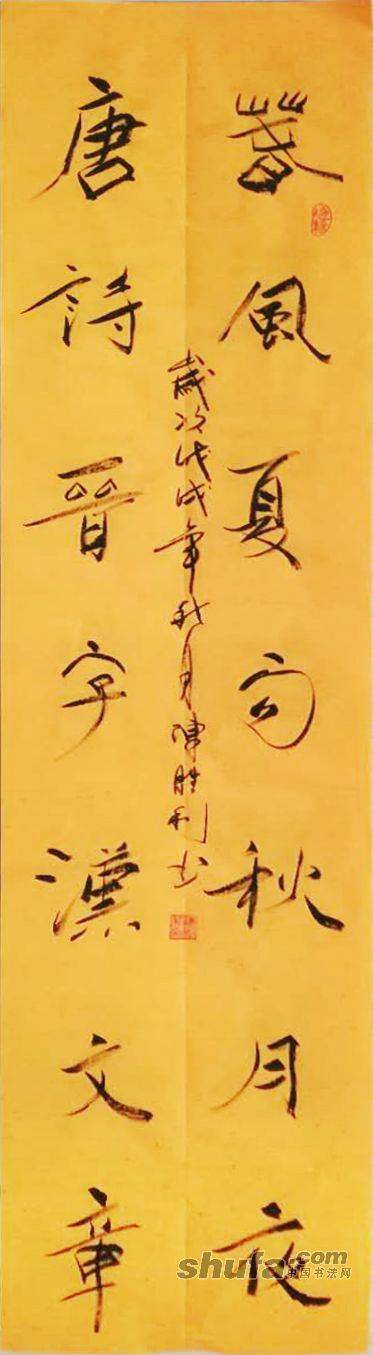 春風夏雨秋月夜
唐詩晉字漢文章
歲次戊戌年秋月陳胜利书
shufa.com
中国书法网